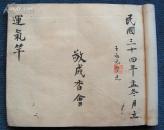 民國三十四年孟冬月立
敬成香會
運氣竿